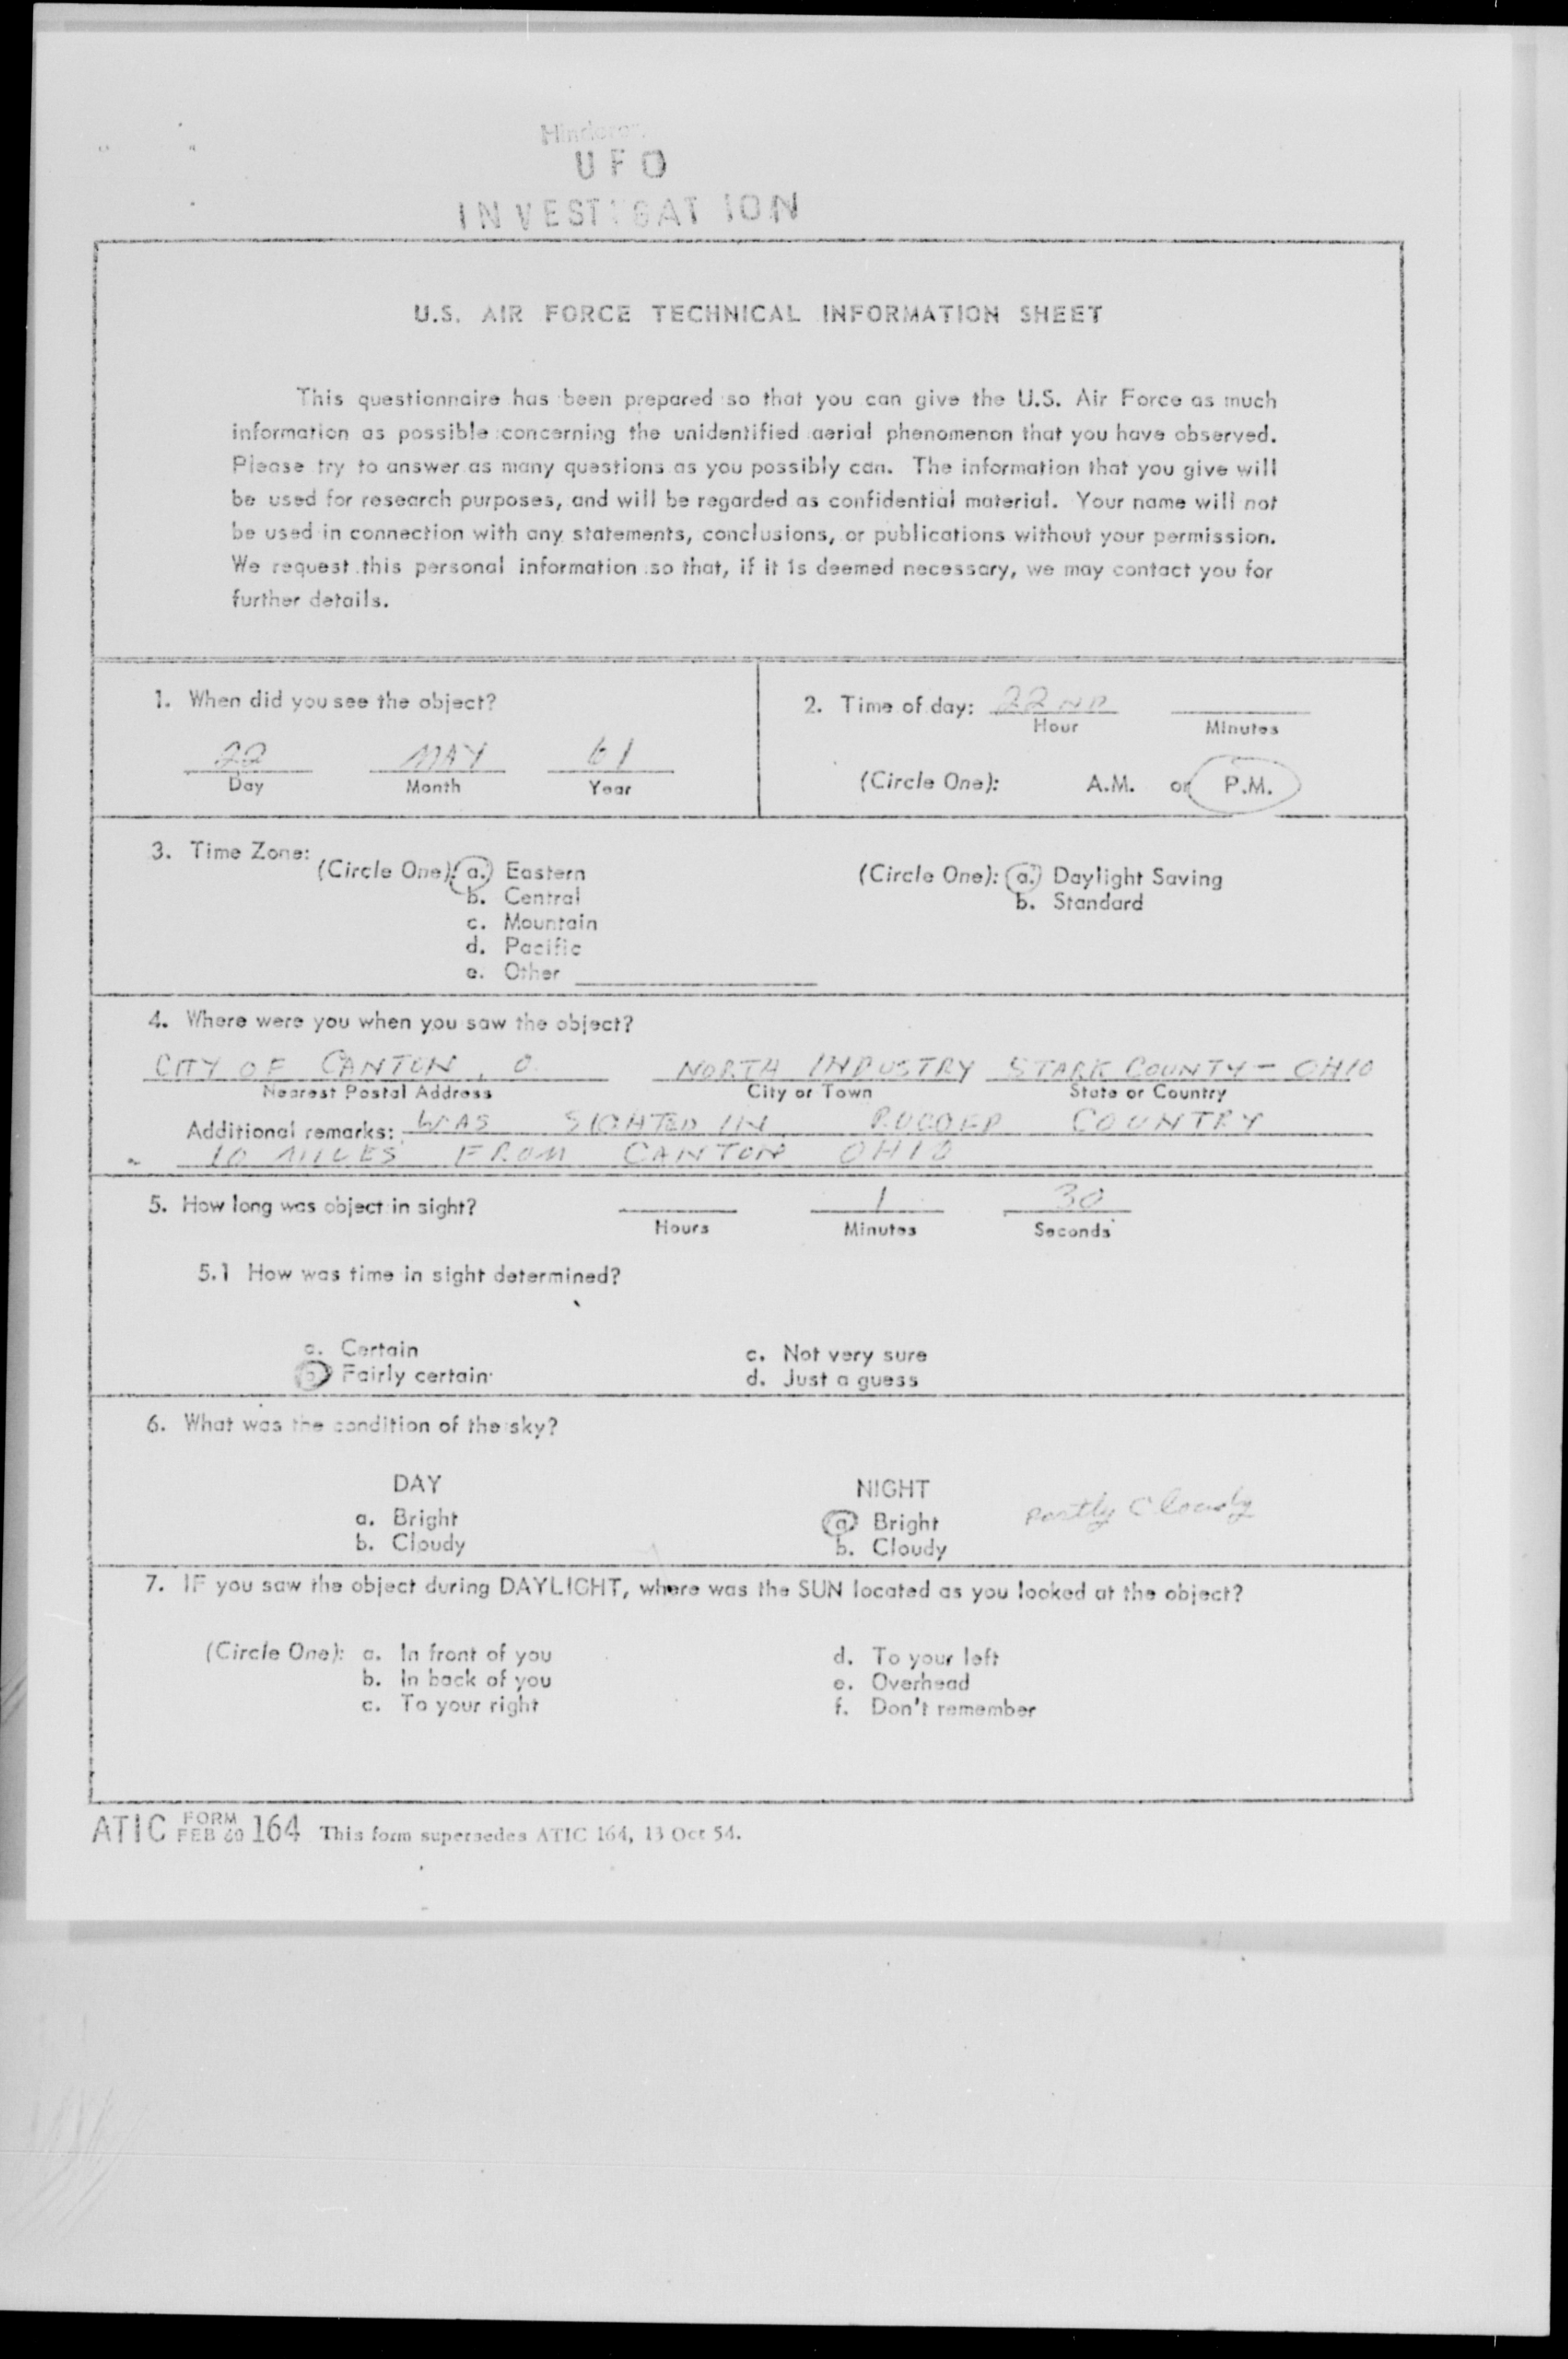 UFO
INVESTIGATION
U.S. AIR FORCE TECHNICAL INFORMATION SHEET
This questionnaire has been prepared so that you can give the U.S. Air Force as much
information as possible concerning the unidentified aerial phenomenon that you have observed.
Please try to answer as many questions as you possibly can. The information that you give will
be used for research purposes, and will be regarded as confidential material. Your name will not
be used in connection with any statements, conclusions, or publications without your permission.
We request this personal information so that, if it is deemed necessary, we may contact you for
further details.
1. When did you see the object?
22 MAY 61
Day Month Year
2. Time of day: 22ND
Hour Minutes
(Circle One): A.M. or P.M.
3. Time Zone:
(Circle One): a. Eastern
b. Central
c. Mountain
d. Pacific
e. Other
(Circle One): a. Daylight Saving
b. Standard
4. Where were you when you saw the object?
CITY OF CANTON, O. NORTH INDUSTRY STARK COUNTY - OHIO
Nearest Postal Address City or Town State or Country
Additional remarks: WAS SIGHTED IN RUGGED COUNTRY
10 MILES FROM CANTON OHIO
5. How long was object in sight? 1 30
Hours Minutes Seconds
5.1 How was time in sight determined?
a. Certain
b. Fairly certain
c. Not very sure
d. Just a guess
6. What was the condition of the sky?
DAY
a. Bright
b. Cloudy
NIGHT
a. Bright
b. Cloudy
Partly Cloudy
7. IF you saw the object during DAYLIGHT, where was the SUN located as you looked at the object?
(Circle One): a. In front of you
b. In back of you
c. To your right
d. To your left
e. Overhead
f. Don't remember
ATIC FORM FEB 60 164 This form supersedes ATIC 164, 13 Oct 54.